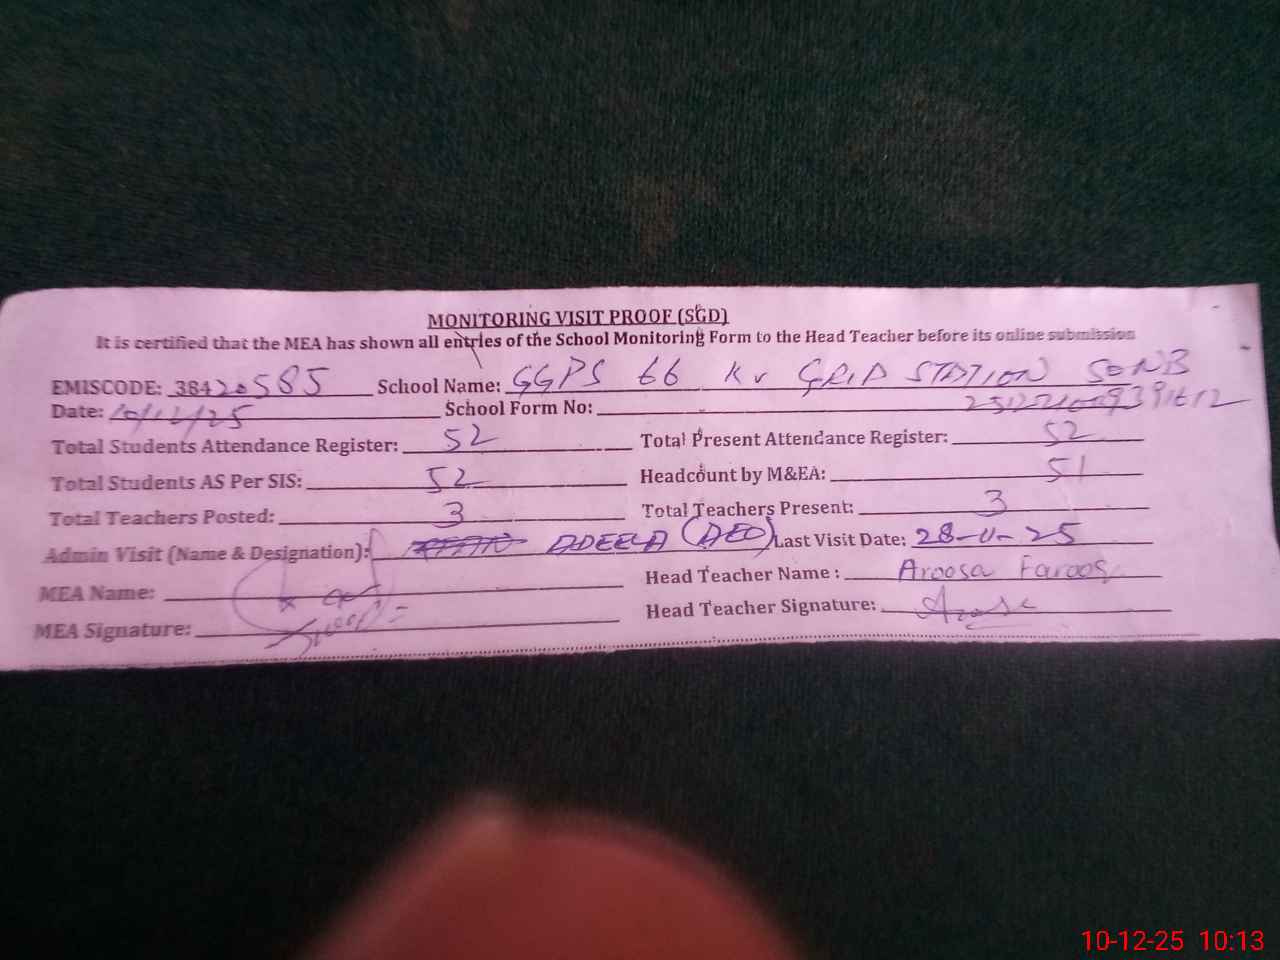 MONITORING VISIT PROOF (SGD)
It is certified that the MEA has shown all entries of the School Monitoring Form to the Head Teacher before its online submission
EMISCODE: 38420585 School Name: GGPS 66 KV GRID STATION
Date: 10/12/25 School Form No:
Total Students Attendance Register: 52 Total Present Attendance Register: 52
Total Students AS Per SIS: 52 Headcount by M&EA: 51
Total Teachers Posted: 3 Total Teachers Present: 3
Admin Visit (Name & Designation): ADEELA (AEO) Last Visit Date: 28-11-25
MEA Name: Head Teacher Name : Aroosa Farooq
MEA Signature: Head Teacher Signature:
10-12-25 10:13